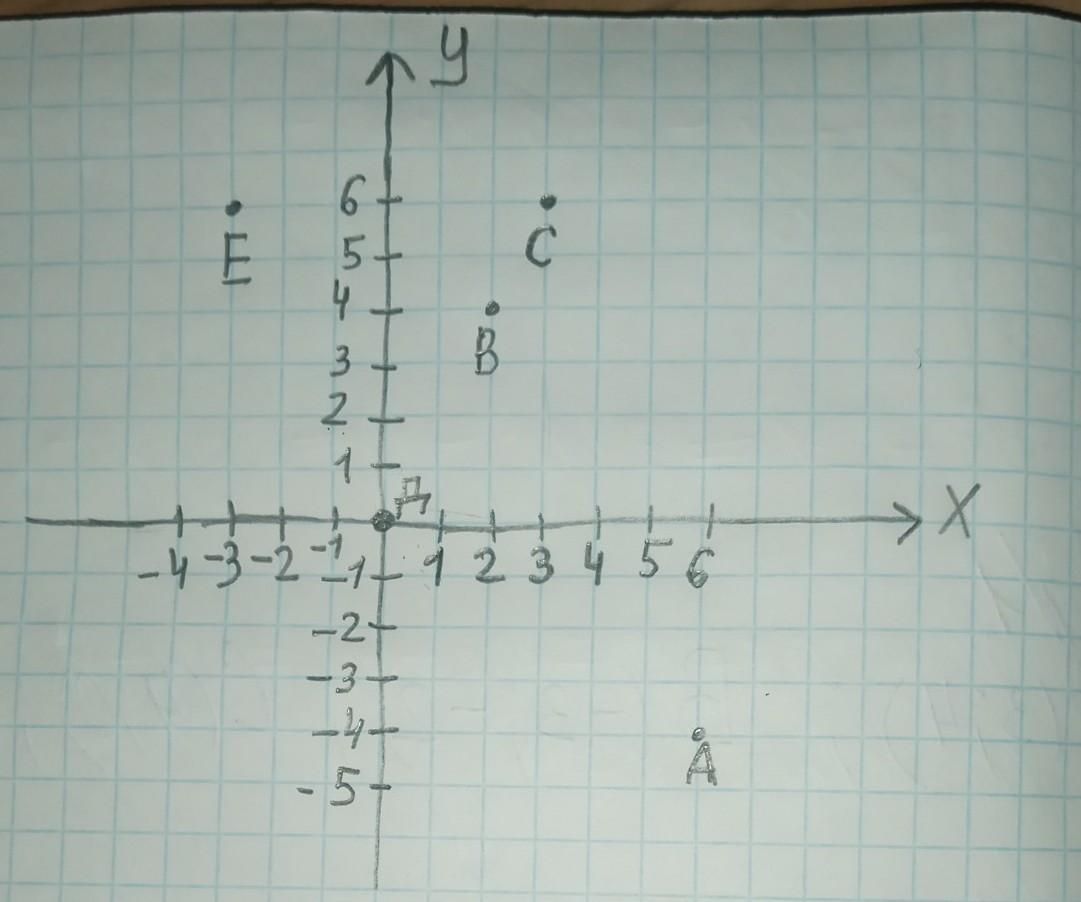 У
6
E
C
5
4
B
3
2
1
Д
X
-4 -3 -2 -1 1 2 3 4 5 6
-1
-2
-3
-4
A
-5